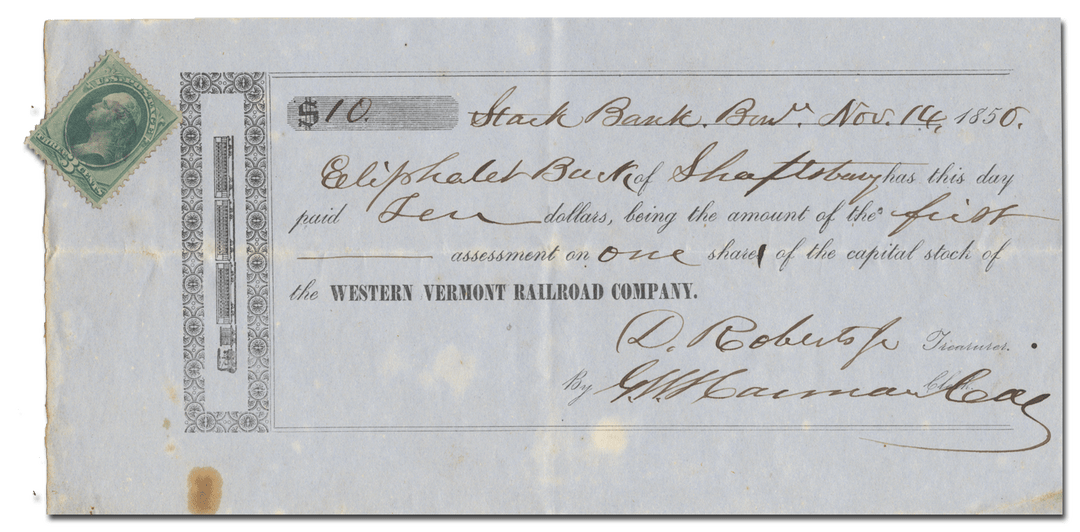 $10. Stark Bank. Benⁿ. Nov. 14, 1850.
Eliphalet Buck of Shaftsbury has this day
paid Ten dollars, being the amount of the first
assessment on one share of the capital stock of
the WESTERN VERMONT RAILROAD COMPANY.
D. Roberts Jr Treasurer.
By G W Harman